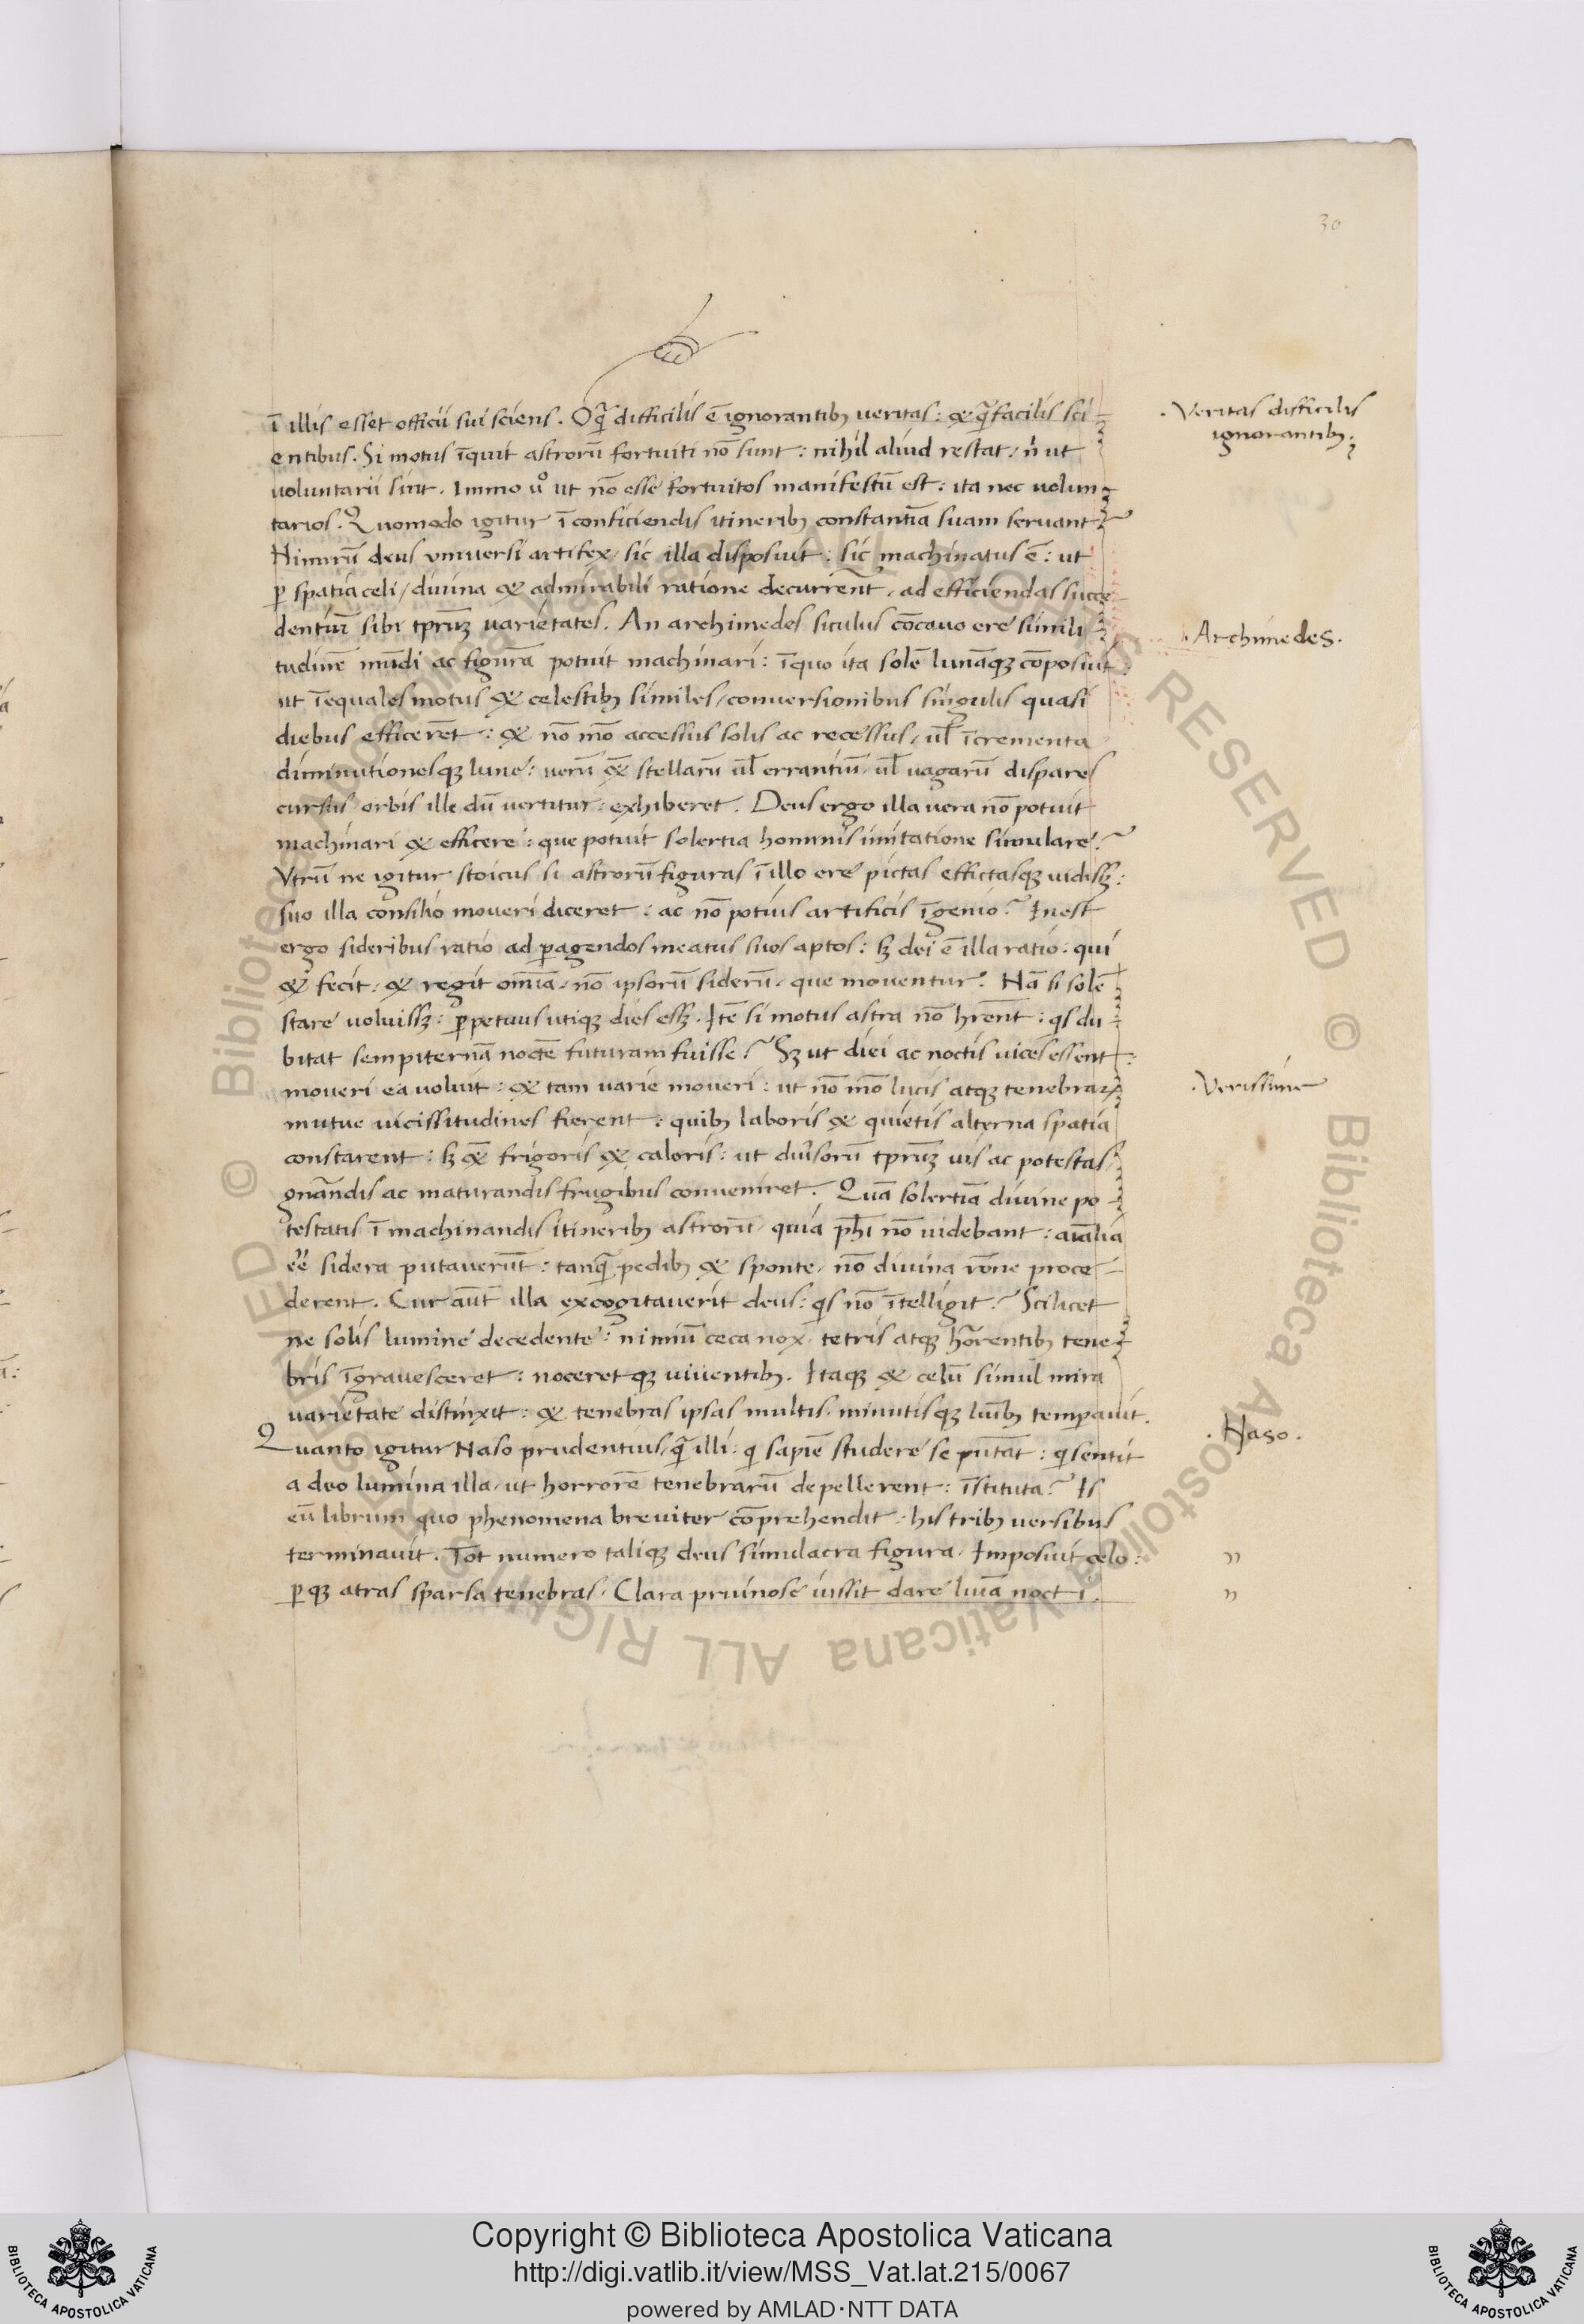 30
ī illis esset officii sui sciens. O q̄ difficilis ē ignorantibꝫ veritas: & q̄ facilis sci
entibus. Si motus īquit astrorū fortuiti nō sunt: nihil aliud restat: n̄ ut
voluntarii sint. Immo ůo ut nō esse fortuitos manifestū est: ita nec volun
tarios. Quomodo igitur ī conficiendis itineribꝫ constantiā suam servant?
Nimirū deus universi artifex, sic illa disposuit: sic machinatus ē: ut
ꝑ spatia celi, divina & admirabili ratione decurrēnt, ad efficiendas succe
dentiū sibi tꝑuꝫ varietates. An archimedes siculus cōcavo ere simili
tudinē mūdi ac figurā potuit machinari: ī quo ita solē lunāqꝫ cōposuit:
ut īequales motus & celestibꝫ similes, conversionibus singulis quasi
diebus efficerēt: & nō mō accessus solis ac recessus, ul̄ īcrementa
diminutionesqꝫ lune: verū & stellarū ul̄ errantiū, ul̄ vagarū dispares
cursus orbis ille dū vertitur: exhiberet. Deus ergo illa vera nō potuit
machinari & efficere: que potuit solertia hominis imitatione simulare?
Vtrū ne igitur stoicus si astrorū figuras ī illo ere pictas effictasqꝫ vidisꝫ:
suo illa consilio moveri diceret: ac nō potius artificis īgenio? Inest
ergo sideribus ratio ad ꝑagendos meatus suos aptos: sꝫ dei ē illa ratio: qui
& fecit, & regit omīa, nō ipsorū siderū, que moventur. Nā si solē
stare voluissꝫ: ꝑpetuus utiqꝫ dies essꝫ. Itē si motus astra nō hr̄ent: qs du
bitat sempiternā noctē futuram fuisse? Sꝫ ut diei ac noctis vices essent:
moveri ea voluit: & tam varie moveri: ut nō mō lucis atqꝫ tenebraꝝ
mutue vicissitudines fierent: quibꝫ laboris & quietis alterna spatia
constarent: sꝫ & frigoris & caloris: ut div̄sorū tꝑuꝫ vis ac potestas,
gnāndis ac maturandis frugibus conveniret. Quā solertiā divine po
testatis ī machinandis itineribꝫ astrorū, quia ph̄i nō videbant: aīalia
ēe sidera putaverūt: tanq̄ pedibꝫ & sponte, nō divina rōne proce
derent. Cur aūt illa excogitaverit deus: qs nō ītelligit? Scilicet
ne solis lumine decedente: nimiū ceca nox, tetris atqꝫ horrentibꝫ tene
bris īgravesceret: noceretqꝫ viventibꝫ. Itaqꝫ & celū simul mira
varietate distinxit: & tenebras ipsas multis, minutisqꝫ luībꝫ temꝑavit.
Quanto igitur Naso prudentius, q̄ illi: qi sapiē studere se putāt: qi sentit
a deo lumina illa, ut horrorē tenebrarū depellerent: īstituta? Is
eū librum quo phenomena breviter cōprehendit, his tribꝫ versibus
terminavit. Tot numero taliqꝫ deus simulacra figura, Imposuit celo:
ꝑqꝫ atras sparsa tenebras, Clara pruinose iussit dare luīa nocti.
. Veritas difficilis
ignorantibꝫ.
. Archimedes.
. Verissime
. Naso.
"
"
Copyright © Biblioteca Apostolica Vaticana
http://digi.vatlib.it/view/MSS_Vat.lat.215/0067
powered by AMLAD·NTT DATA
BIBLIOTECA APOSTOLICA VATICANA
BIBLIOTECA APOSTOLICA VATICANA
© Biblioteca Apostolica Vaticana ALL RIGHTS RESERVED © Biblioteca Apostolica Vaticana ALL RIGHTS RESERVED